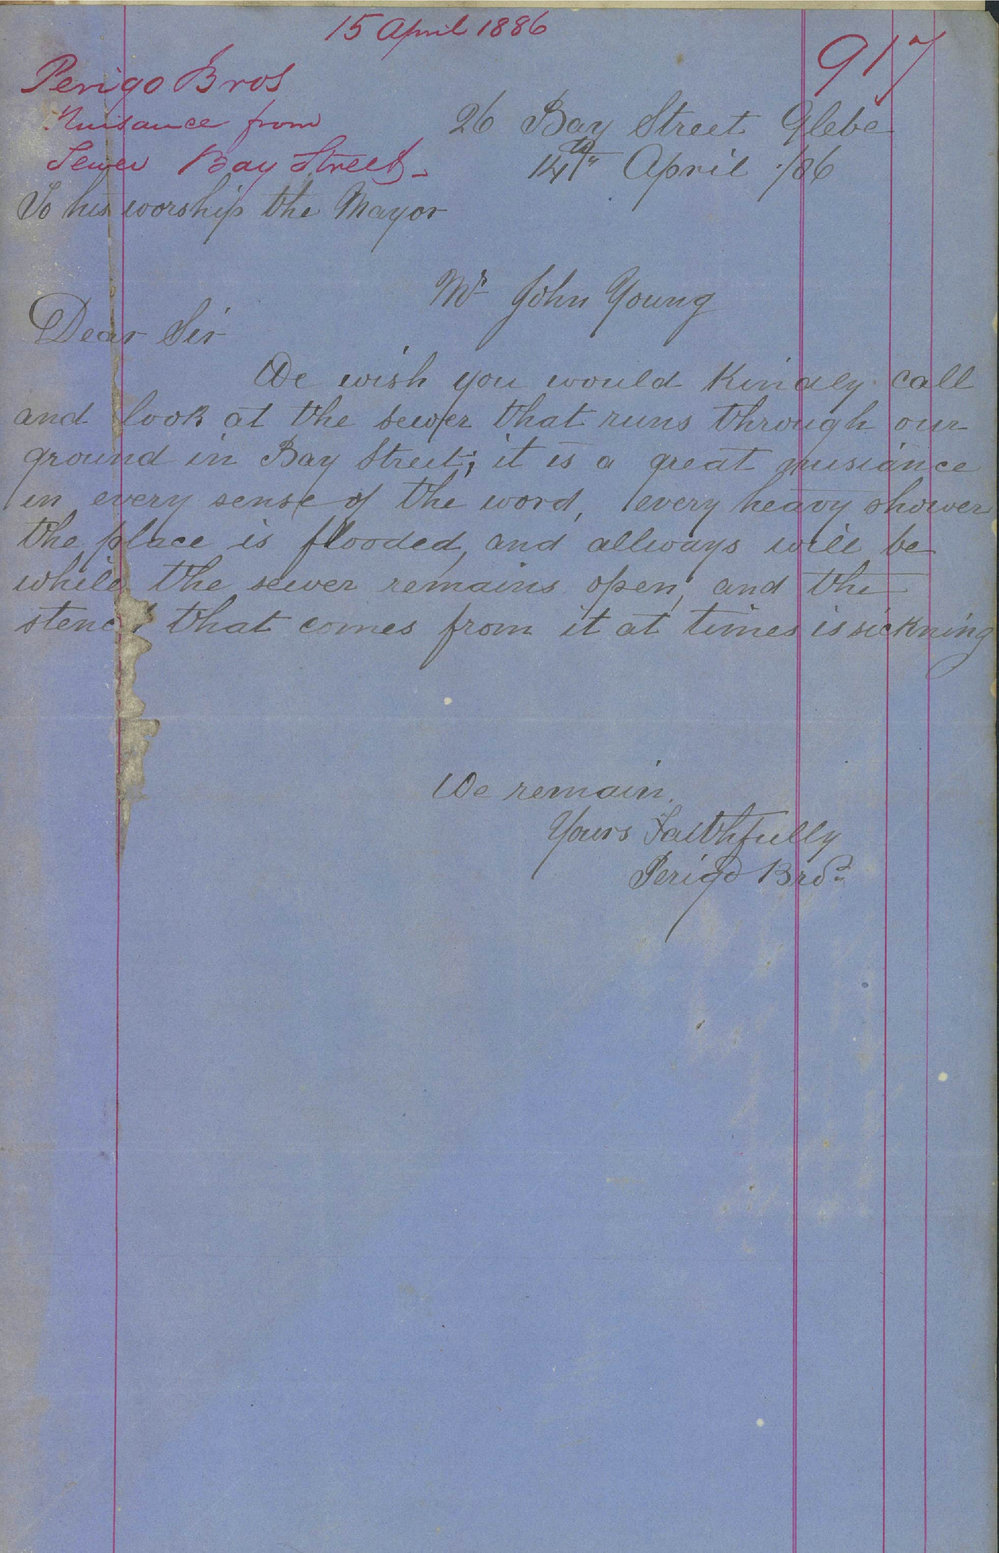 15 April 1886
917
Perigo Bros
Nuisance from
Sewer Bay Street
26 Bay Street Glebe
14th April /86
To his worship the Mayor
Mr John Young
Dear Sir
We wish you would Kindly call
and look at the sewer that runs through our
ground in Bay Street; it is a great nusiance
in every sense of the word, every heavy shower
the place is flooded, and allways will be
while the sewer remains open, and the
stench that comes from it at times is sickning
We remain
Yours Faithfully
Perigo Bros